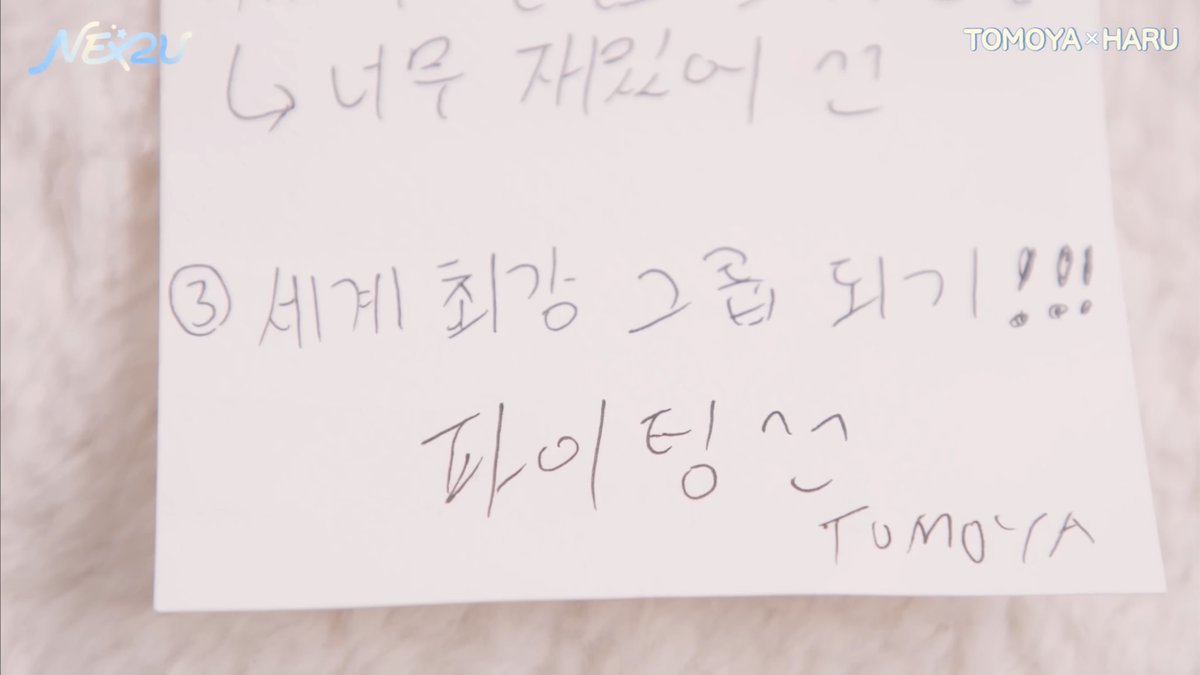 NEX2U
TOMOYA × HARU
↳ 너무 재밌어 ^^
③ 세계 최강 그룹 되기!!!
파이팅 ^^
TOMOYA